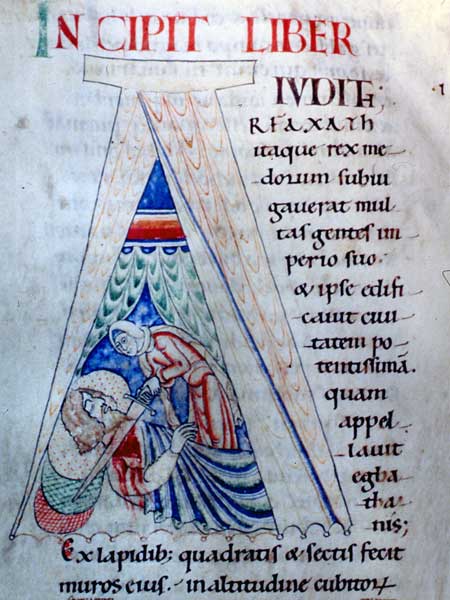 INCIPIT LIBER
IUDITH;
A RFAXATH
itaque rex me
dorum subiu
gauerat mul
tas gentes im
perio suo.
& ipse edifi
cauit ciui
tatem po
tentissimā.
quam
appel
lauit
egba
tha
nis;
Ex lapidib; quadratis & sectis fecit
muros eius. in altitudine cubitorꝝ